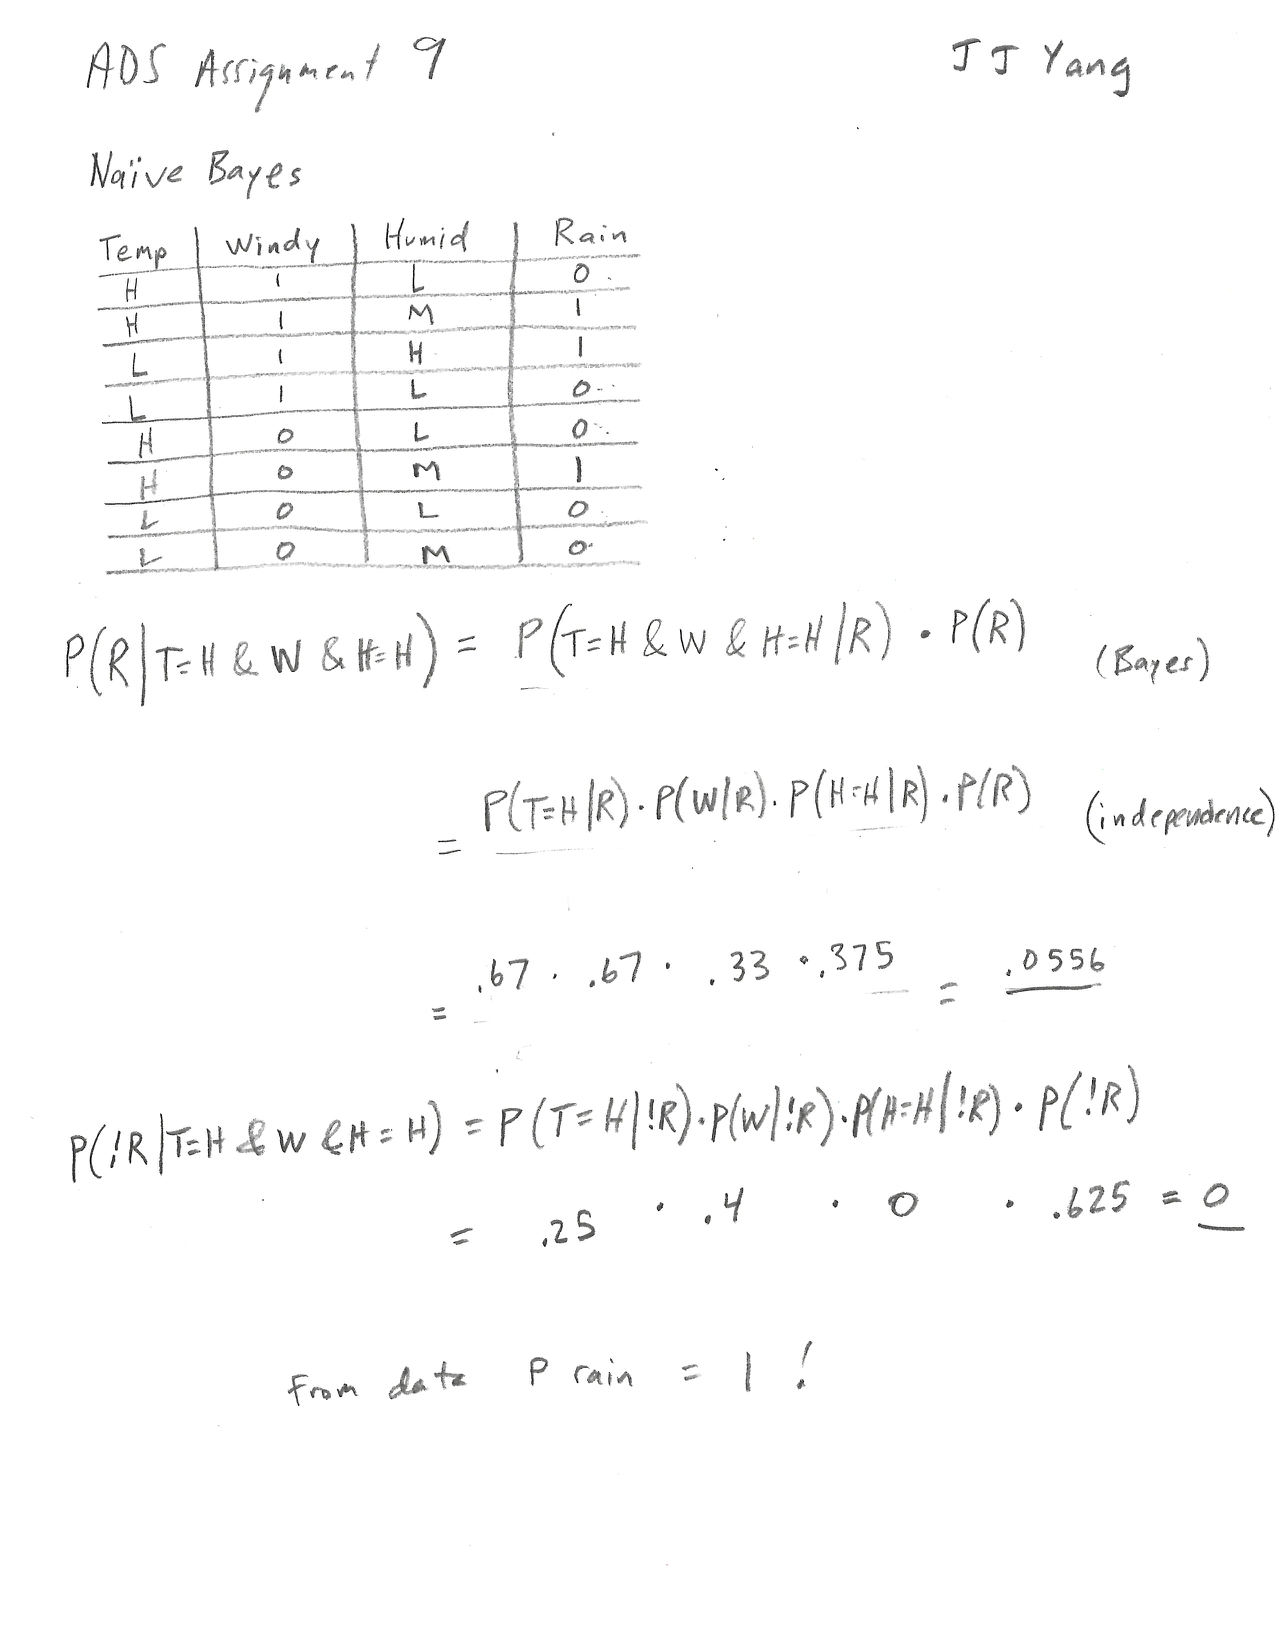 ADS Assignment 9 JJ Yang
Naïve Bayes
Temp Windy Humid Rain
H 1 L 0
H 1 M 1
L 1 H 1
L 1 L 0
H 0 L 0
H 0 M 1
L 0 L 0
L 0 M 0
P(R|T=H & W & H=H) = P(T=H & W & H=H/R) · P(R) (Bayes)
= P(T=H|R) · P(W|R) · P(H=H|R) · P(R) (independence)
= .67 · .67 · .33 · .375 = .0556
P(!R|T=H & W & H=H) = P(T=H|!R) · P(W|!R) · P(H=H|!R) · P(!R)
= .25 · .4 · 0 · .625 = 0
From data P rain = 1 !